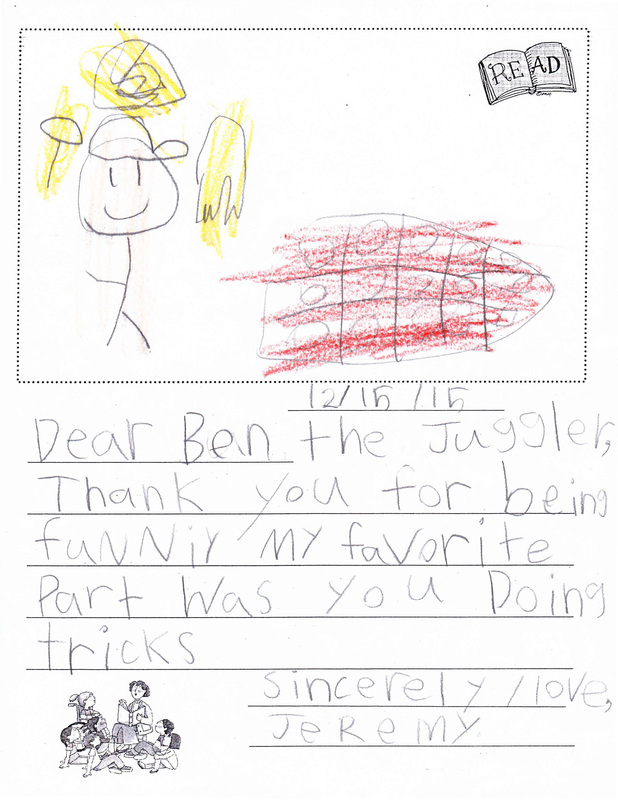 READ
12/15/15
Dear Ben the Juggler,
Thank you for being
fuNNiy My favorite
Part Was you Doing
tricks
Sincerely/love,
JeReMY